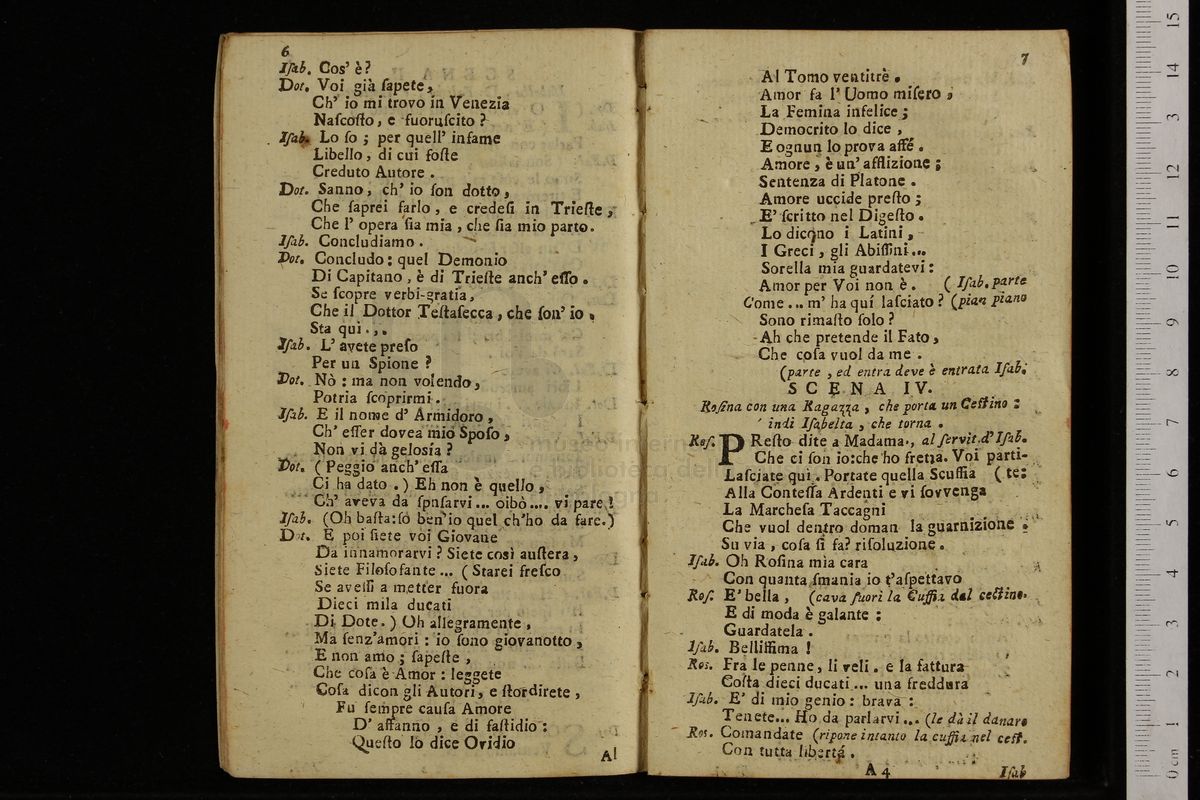 6
Iſab. Cos' è?
Dot. Voi già ſapete,
Ch' io mi trovo in Venezia
Naſcoſto, e fuoruſcito ?
Iſab. Lo ſo ; per quell' infame
Libello, di cui foſte
Creduto Autore .
Dot. Sanno, ch' io ſon dotto,
Che ſaprei farlo, e credeſi in Trieſte,
Che l' opera ſia mia, che ſia mio parto.
Iſab. Concludiamo .
Dot. Concludo: quel Demonio
Di Capitano, è di Trieſte anch' eſſo.
Se ſcopre verbi-gratia,
Che il Dottor Teſtaſecca, che ſon' io,
Sta qui...
Iſab. L' avete preſo
Per un Spione ?
Dot. Nò : ma non volendo,
Potria ſcoprirmi.
Iſab. E il nome d' Armidoro,
Ch' eſſer dovea mio Spoſo,
Non vi dà geloſía ?
Dot. ( Peggio anch' eſſa
Ci ha dato .) Eh non è quello,
Ch' aveva da ſpoſarvi ... oibò .... vi pare !
Iſab. (Oh baſta: ſò ben'io quel ch'ho da fare.)
Dot. E poi ſiete voi Giovane
Da innamorarvi ? Siete così auſtera,
Siete Filoſofante ... ( Starei freſco
Se aveſſi a metter fuora
Dieci mila ducati
Di Dote. ) Oh allegramente,
Ma ſenz'amori : io ſono giovanotto,
E non amo ; ſapeſte,
Che coſa è Amor : leggete
Coſa dicon gli Autori, e ſtordirete,
Fu ſempre cauſa Amore
D' affanno, e di faſtidio :
Queſto lo dice Ovidio
Al
7
Al Tomo ventitrè .
Amor fa l' Uomo miſero,
La Femina infelice ;
Democrito lo dice,
E ognun lo prova affé .
Amore, è un' afflizione ;
Sentenza di Platone .
Amore uccide preſto ;
E' ſcritto nel Digeſto .
Lo dicono i Latini,
I Greci, gli Abiſſini...
Sorella mia guardatevi :
Amor per Voi non è . ( Iſab. parte
Come ... m' ha quí laſciato ? (pian piano
Sono rimaſto ſolo ?
Ah che pretende il Fato,
Che coſa vuol da me .
(parte, ed entra deve è entrata Iſab.
SCENA IV.
Roſina con una Ragazza, che porta un Ceſtino :
indi Iſabelta, che torna .
Roſ. PReſto dite a Madama, al ſervit.d' Iſab.
Che ci ſon io: che ho fretta. Voi parti-
Laſciate qui. Portate quella Scuffia (te:
Alla Conteſſa Ardenti e vi ſovvenga
La Marcheſa Taccagni
Che vuol dentro doman la guarnizione :
Su via, coſa ſi fa? riſoluzione .
Iſab. Oh Roſina mia cara
Con quanta ſmania io t'aſpettavo
Roſ. E' bella, (cava fuori la Cuffia dal ceſtino.
E di moda è galante :
Guardatela .
Iſab. Belliſſima !
Ros. Fra le penne, li veli. e la fattura
Coſta dieci ducati ... una freddura
Iſab. E' di mio genio : brava :
Tenete... Ho da parlarvi ... (le dà il danaro
Ros. Comandate (ripone intanto la cuffia nel ceſt.
Con tutta libertá .
A 4
Iſab